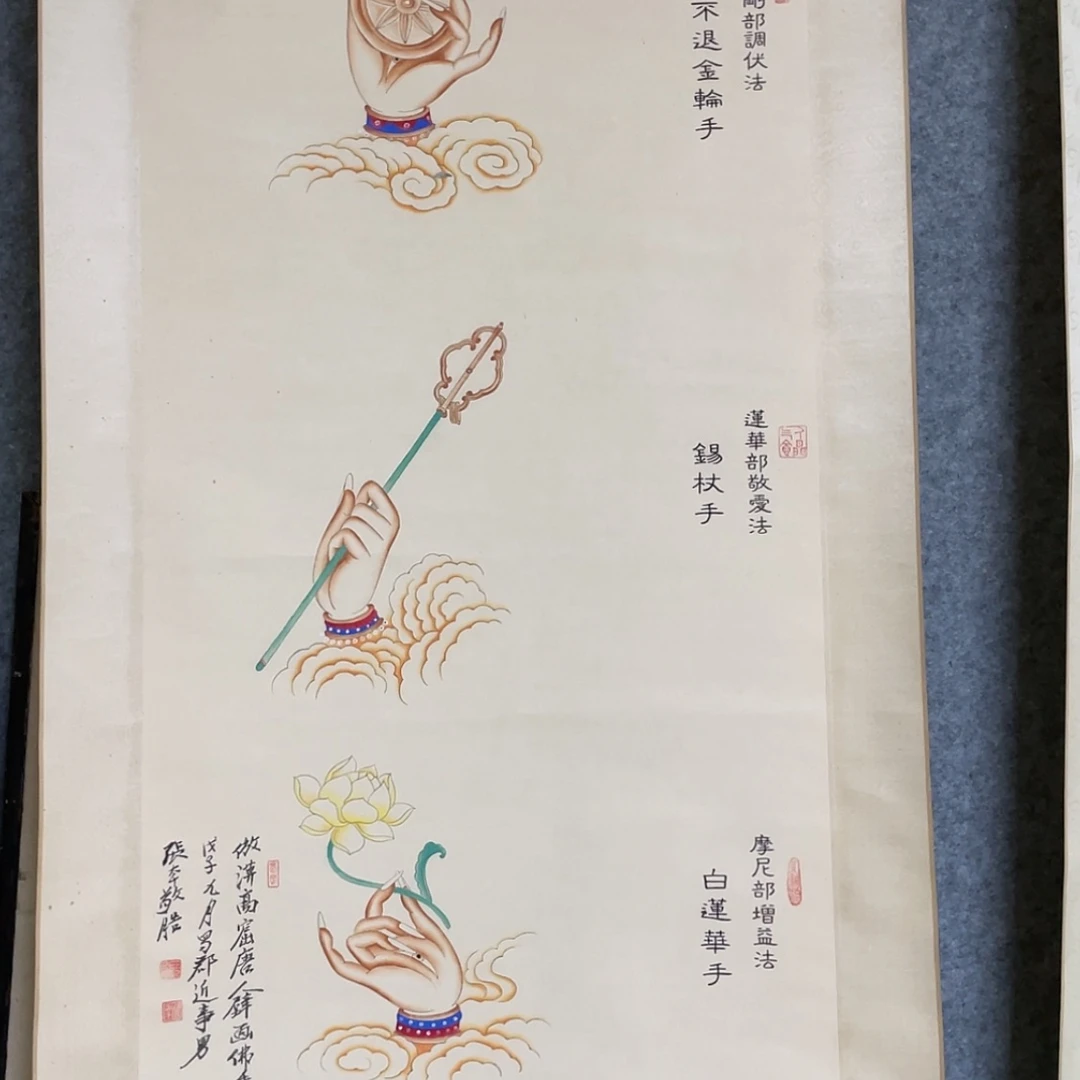 部調伏法
不退金輪手
蓮華部敬愛法
錫杖手
摩尼部增益法
白蓮華手
倣漠高窟唐人鋒画佛
戊子九月蜀郡近事男
張本敬皓